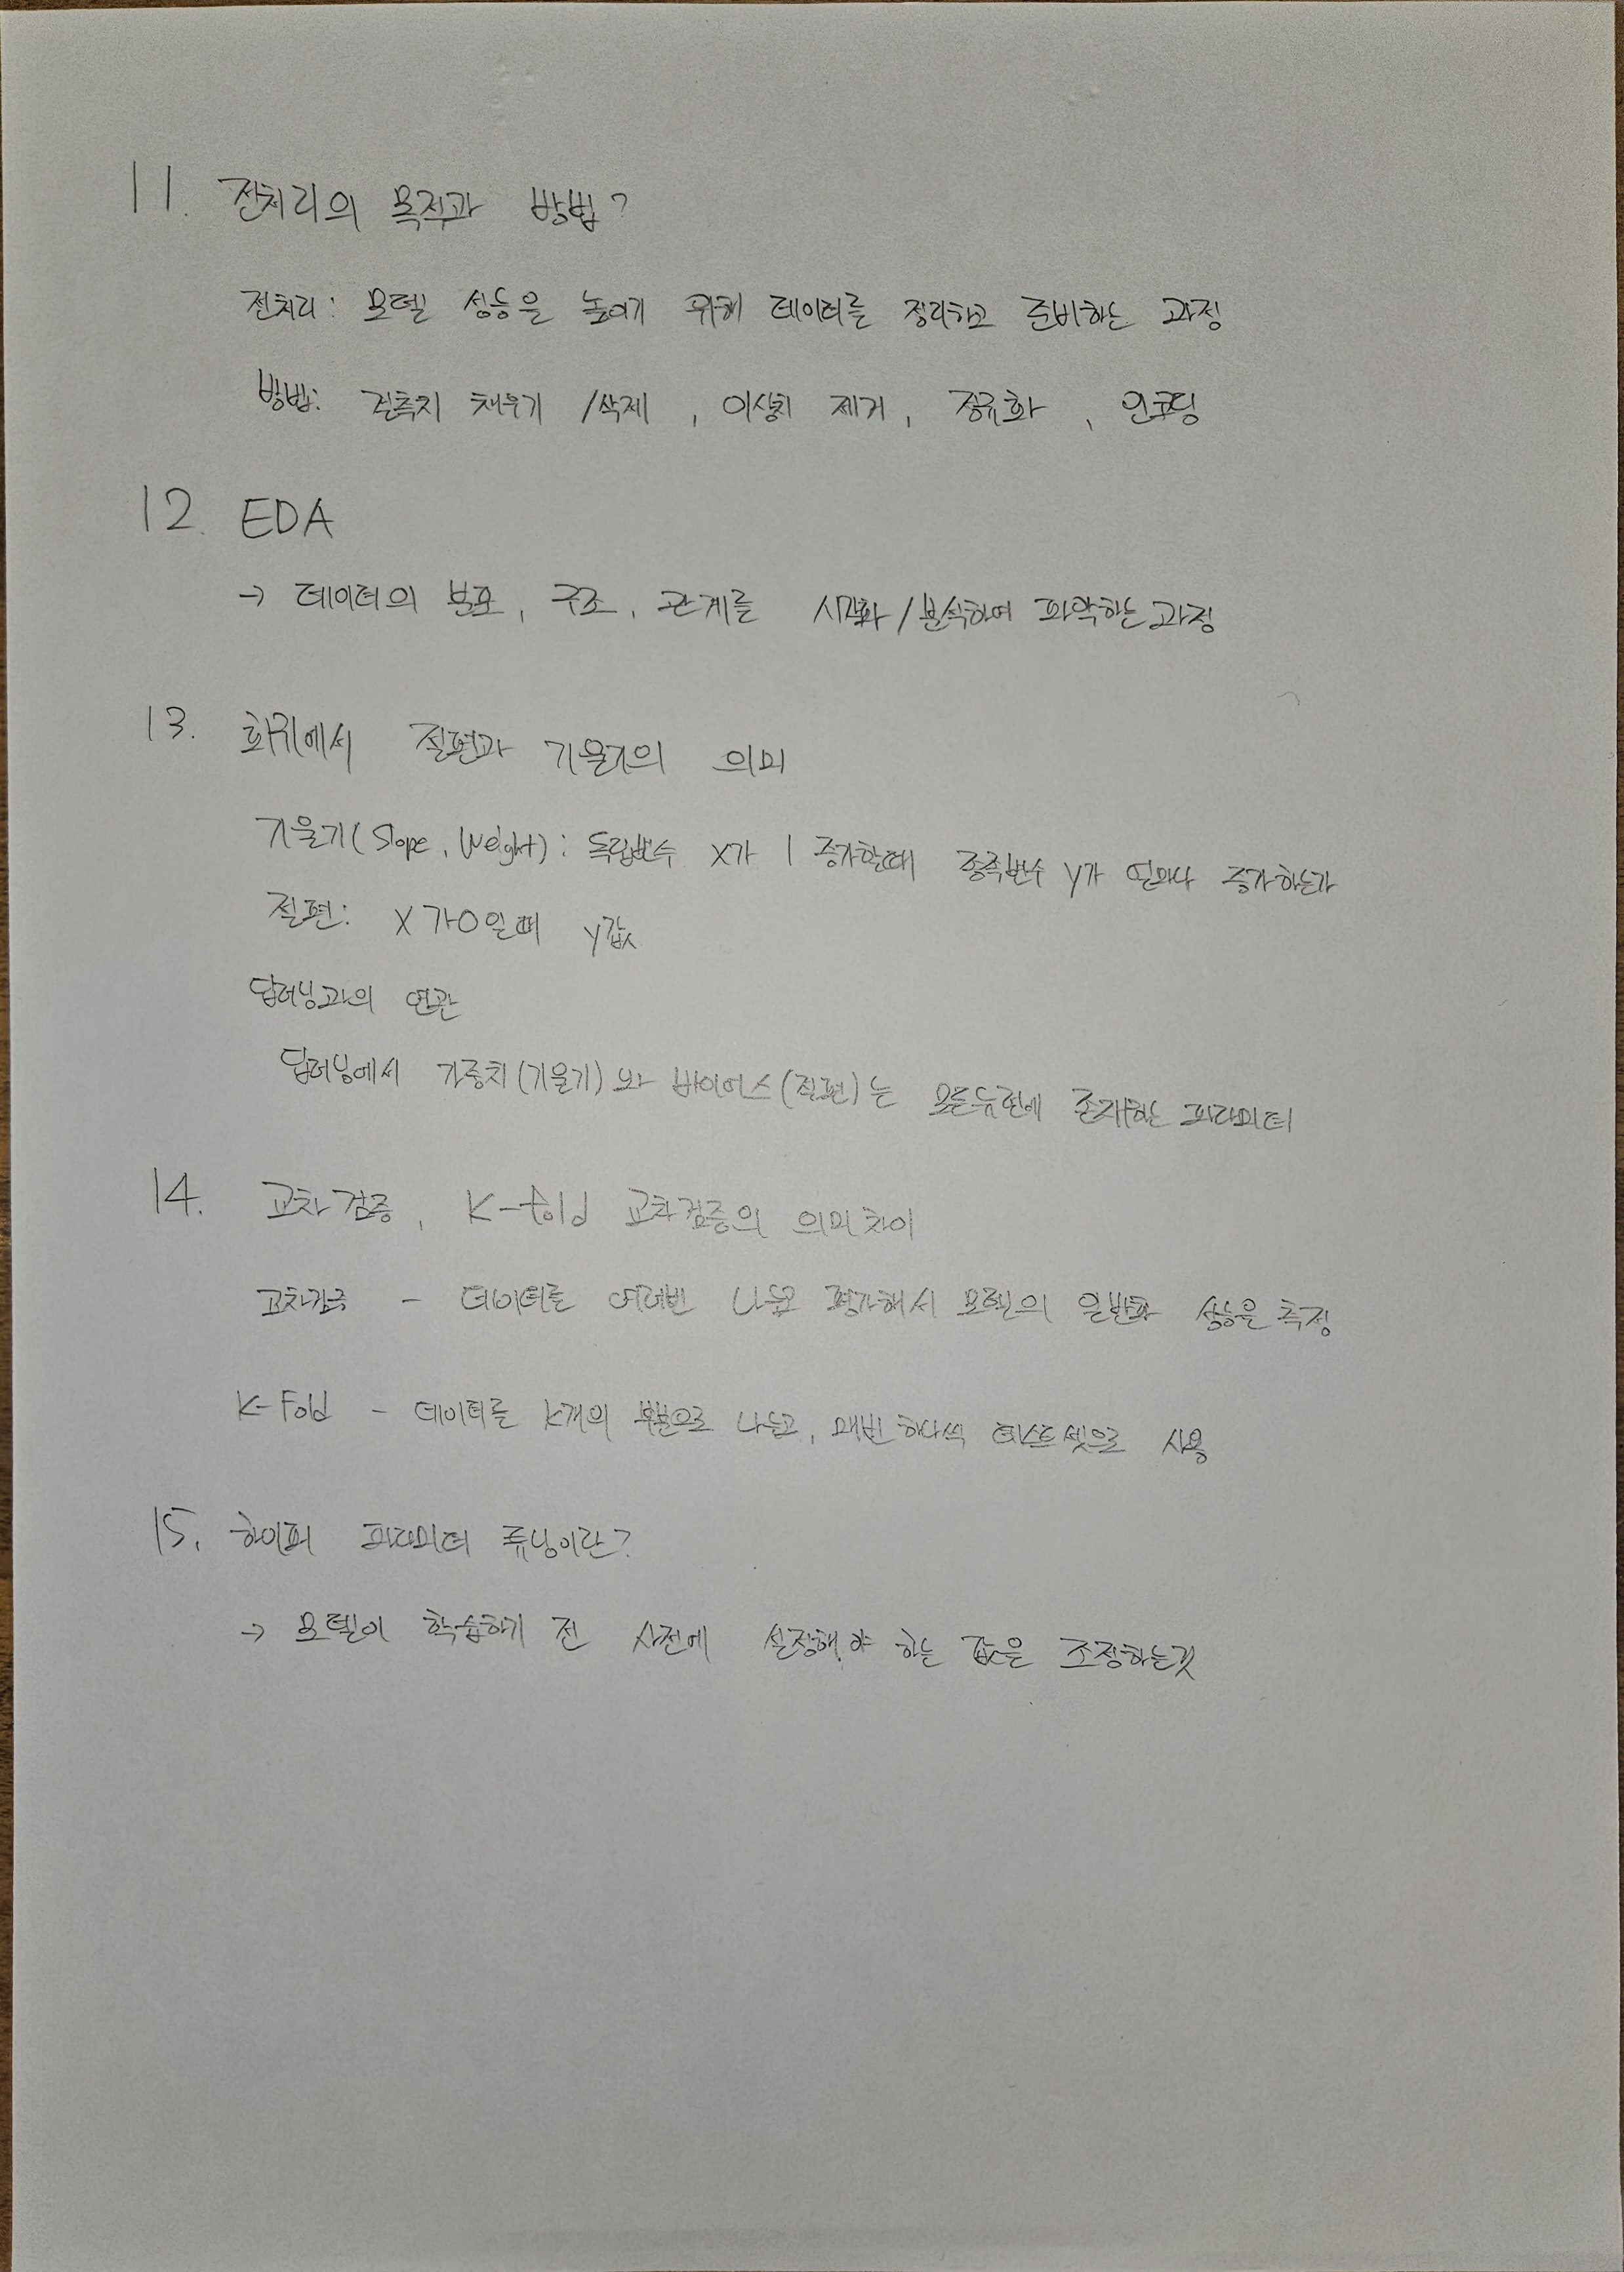 11. 전처리의 목적과 방법?
전처리: 모델 성능을 높이기 위해 데이터를 정리하고 준비하는 과정
방법: 결측치 채우기 /삭제, 이상치 제거, 정규화, 인코딩
12. EDA
→ 데이터의 분포, 구조, 관계를 시각화/분석하여 파악하는 과정
13. 회귀에서 절편과 기울기의 의미
기울기(Slope, Weight): 독립변수 X가 1 증가할때 종속변수 y가 얼마나 증가하는가
절편: X가 0일때 y값
딥러닝과의 연관
딥러닝에서 가중치(기울기)와 바이어스(절편)는 모든뉴런에 존재하는 파라미터
14. 교차검증, K-fold 교차검증의 의미차이
교차검증 - 데이터를 여러번 나눠 평가해서 모델의 일반화 성능을 측정
K-Fold - 데이터를 K개의 부분으로 나누고, 매번 하나씩 테스트셋으로 사용
15. 하이퍼 파라미터 튜닝이란?
→ 모델이 학습하기 전 사전에 설정해야 하는 값을 조정하는것